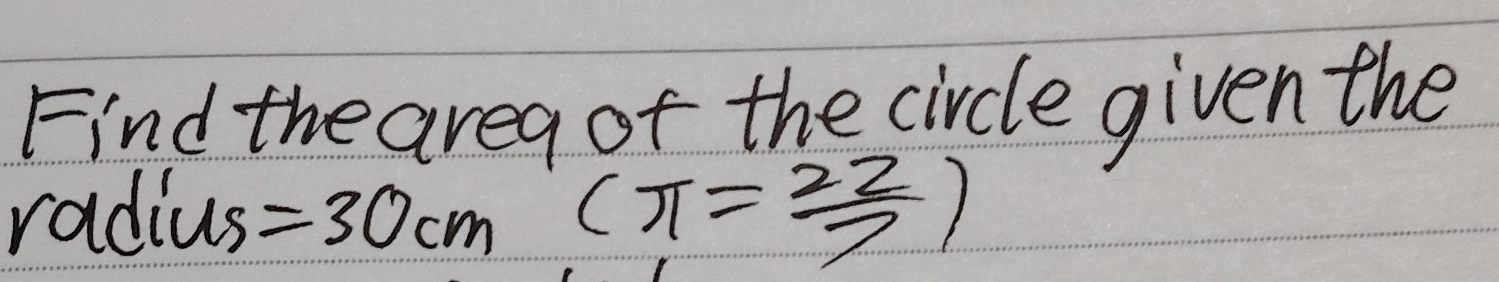 Find the area of the circle given the
radius=30cm (π=22/7)